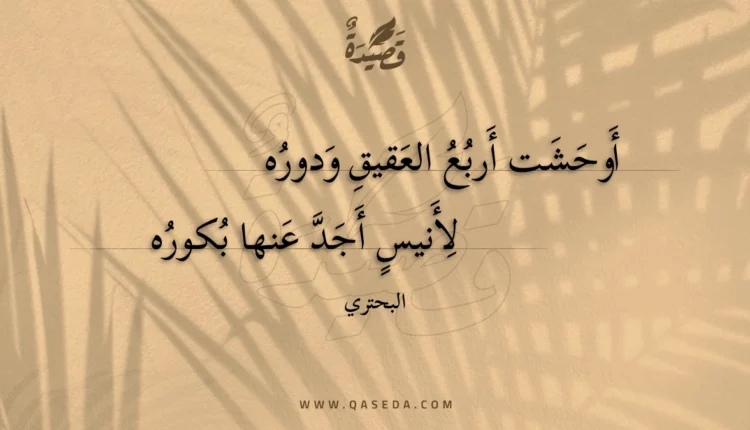 قَصِيْدَةٌ
أَوحَشَت أَربُعُ العَقيقِ وَدورُه
لِأَنيسٍ أَجَدَّ عَنها بُكورُه
البحتري
WWW.QASEDA.COM